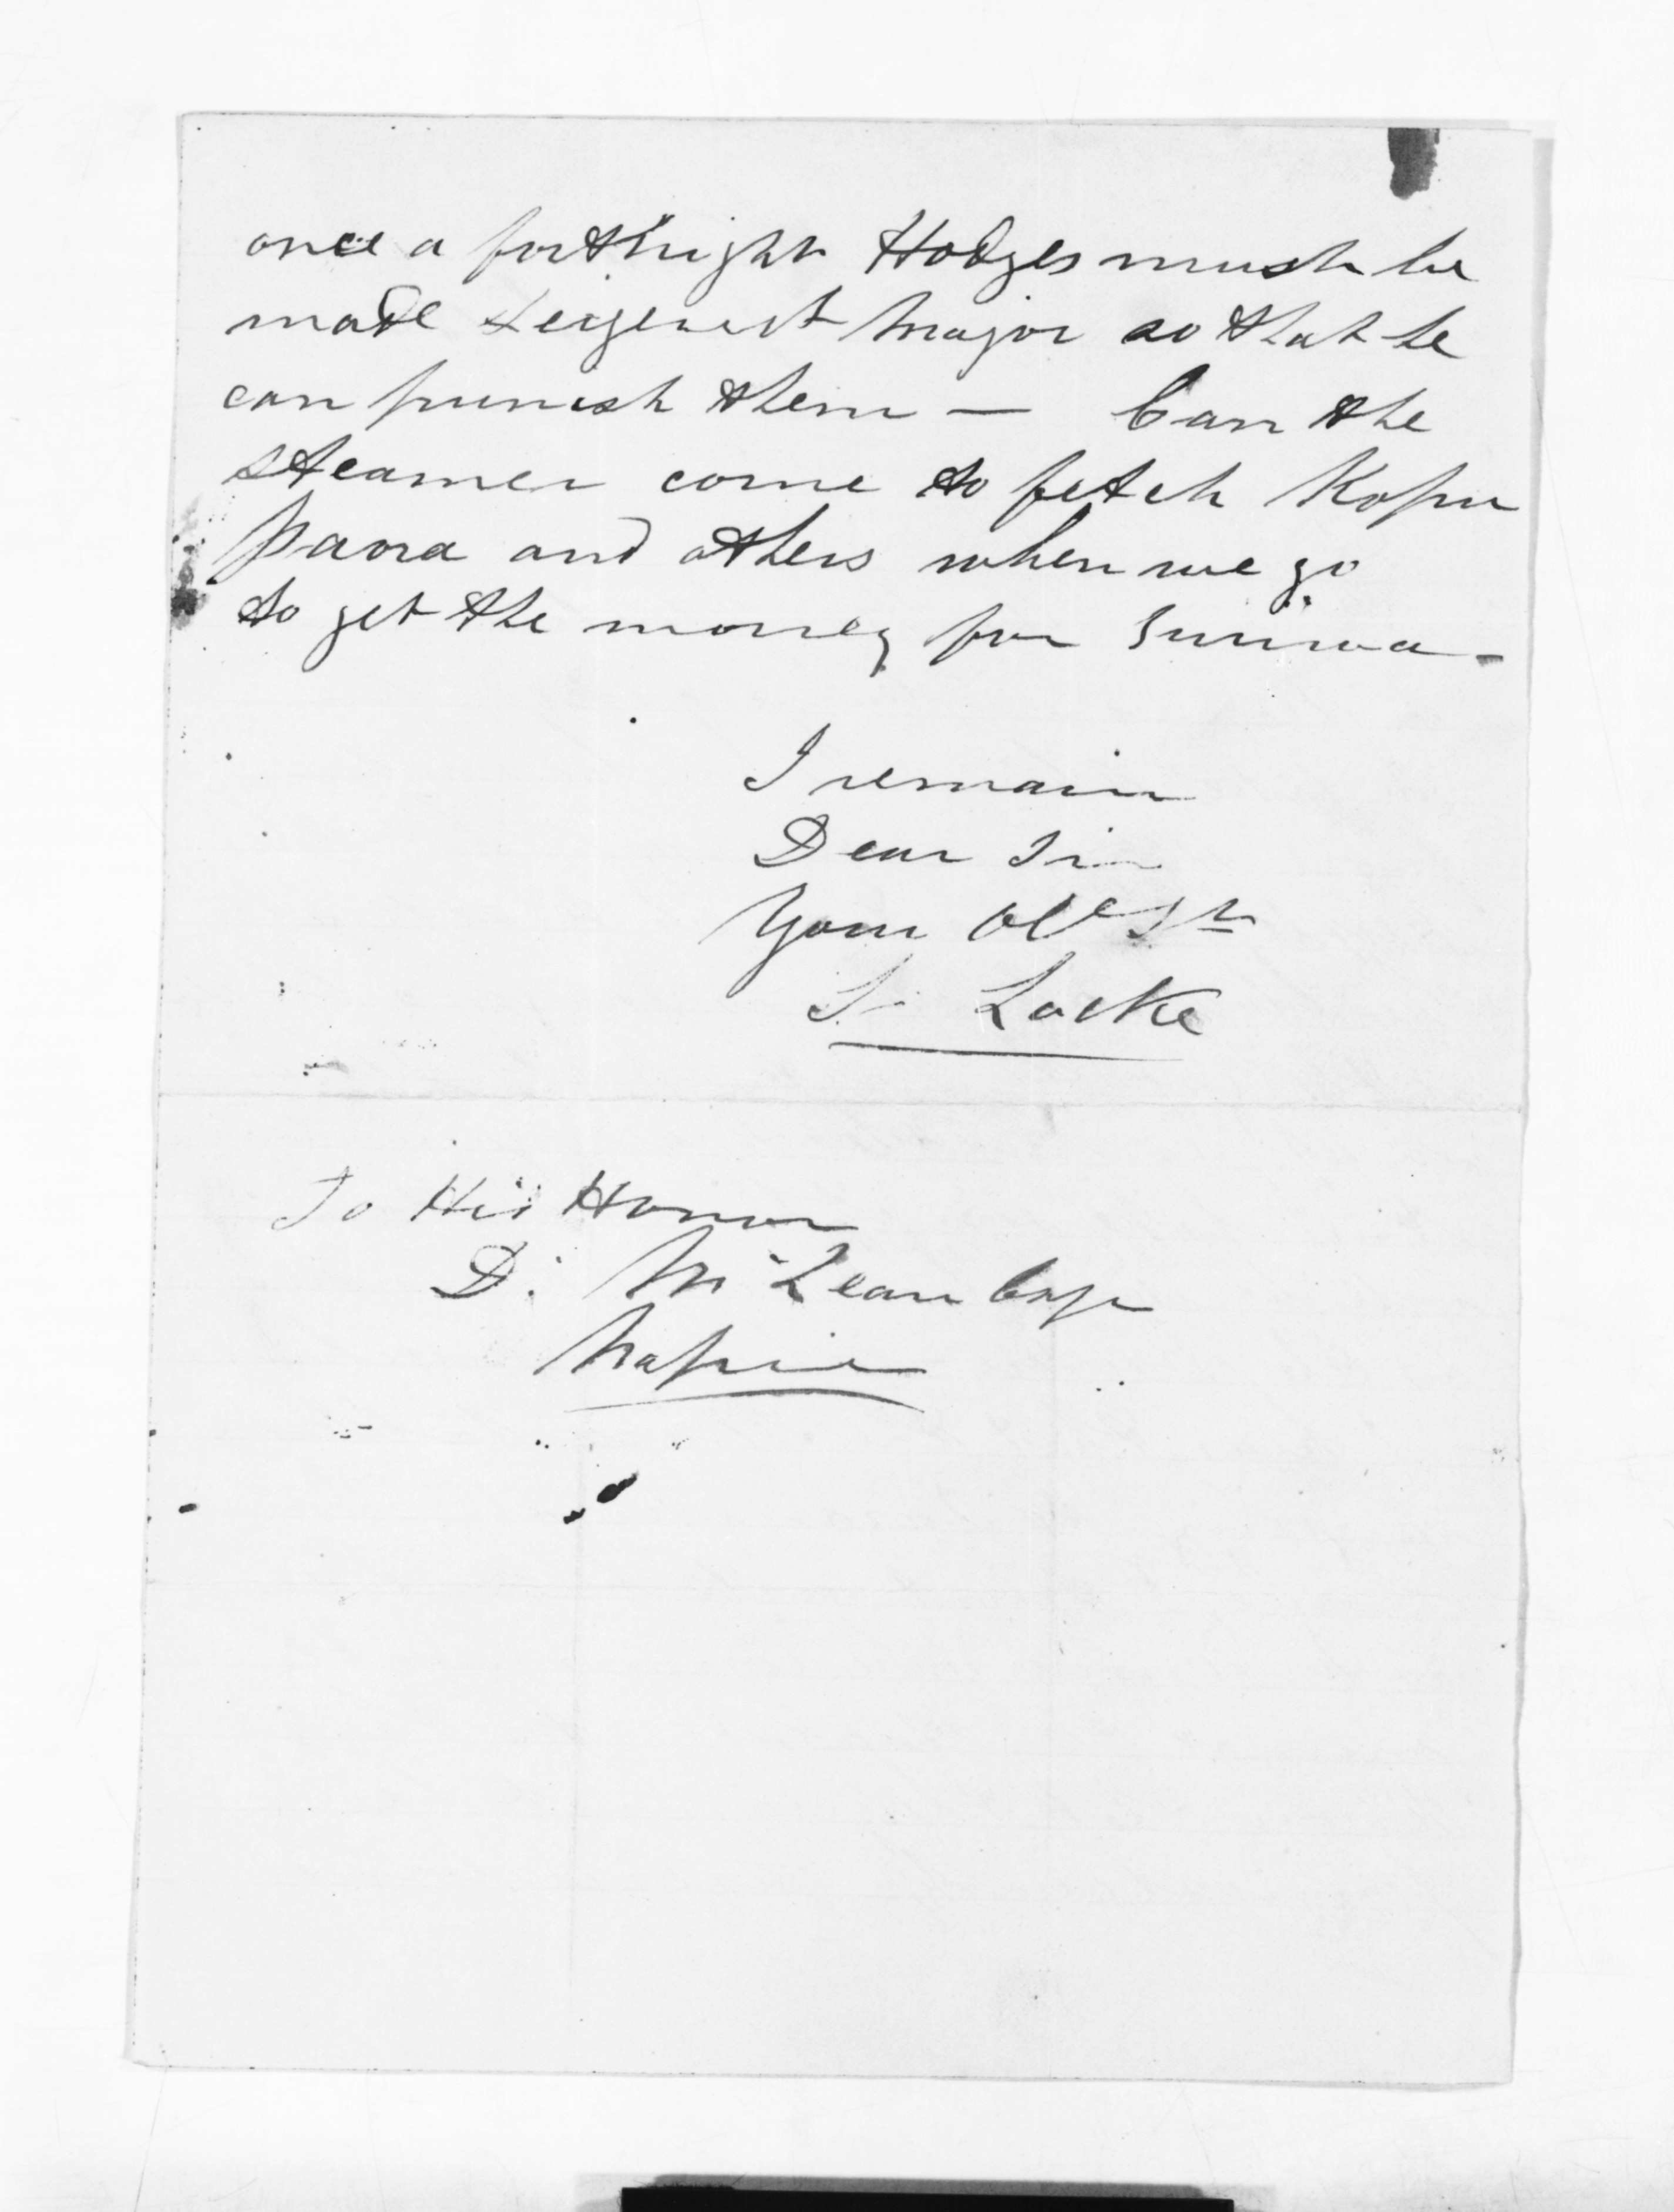 once a fortnight Hodges must be
made Sergeant Major so that he
can punish them — Can the
steamer come to fetch Kopu
Paora and others when we go
to get the money for
I remain
Dear Sir
Your Obt St
S. Locke
To His Honor
D. McLean Esqr
Napier